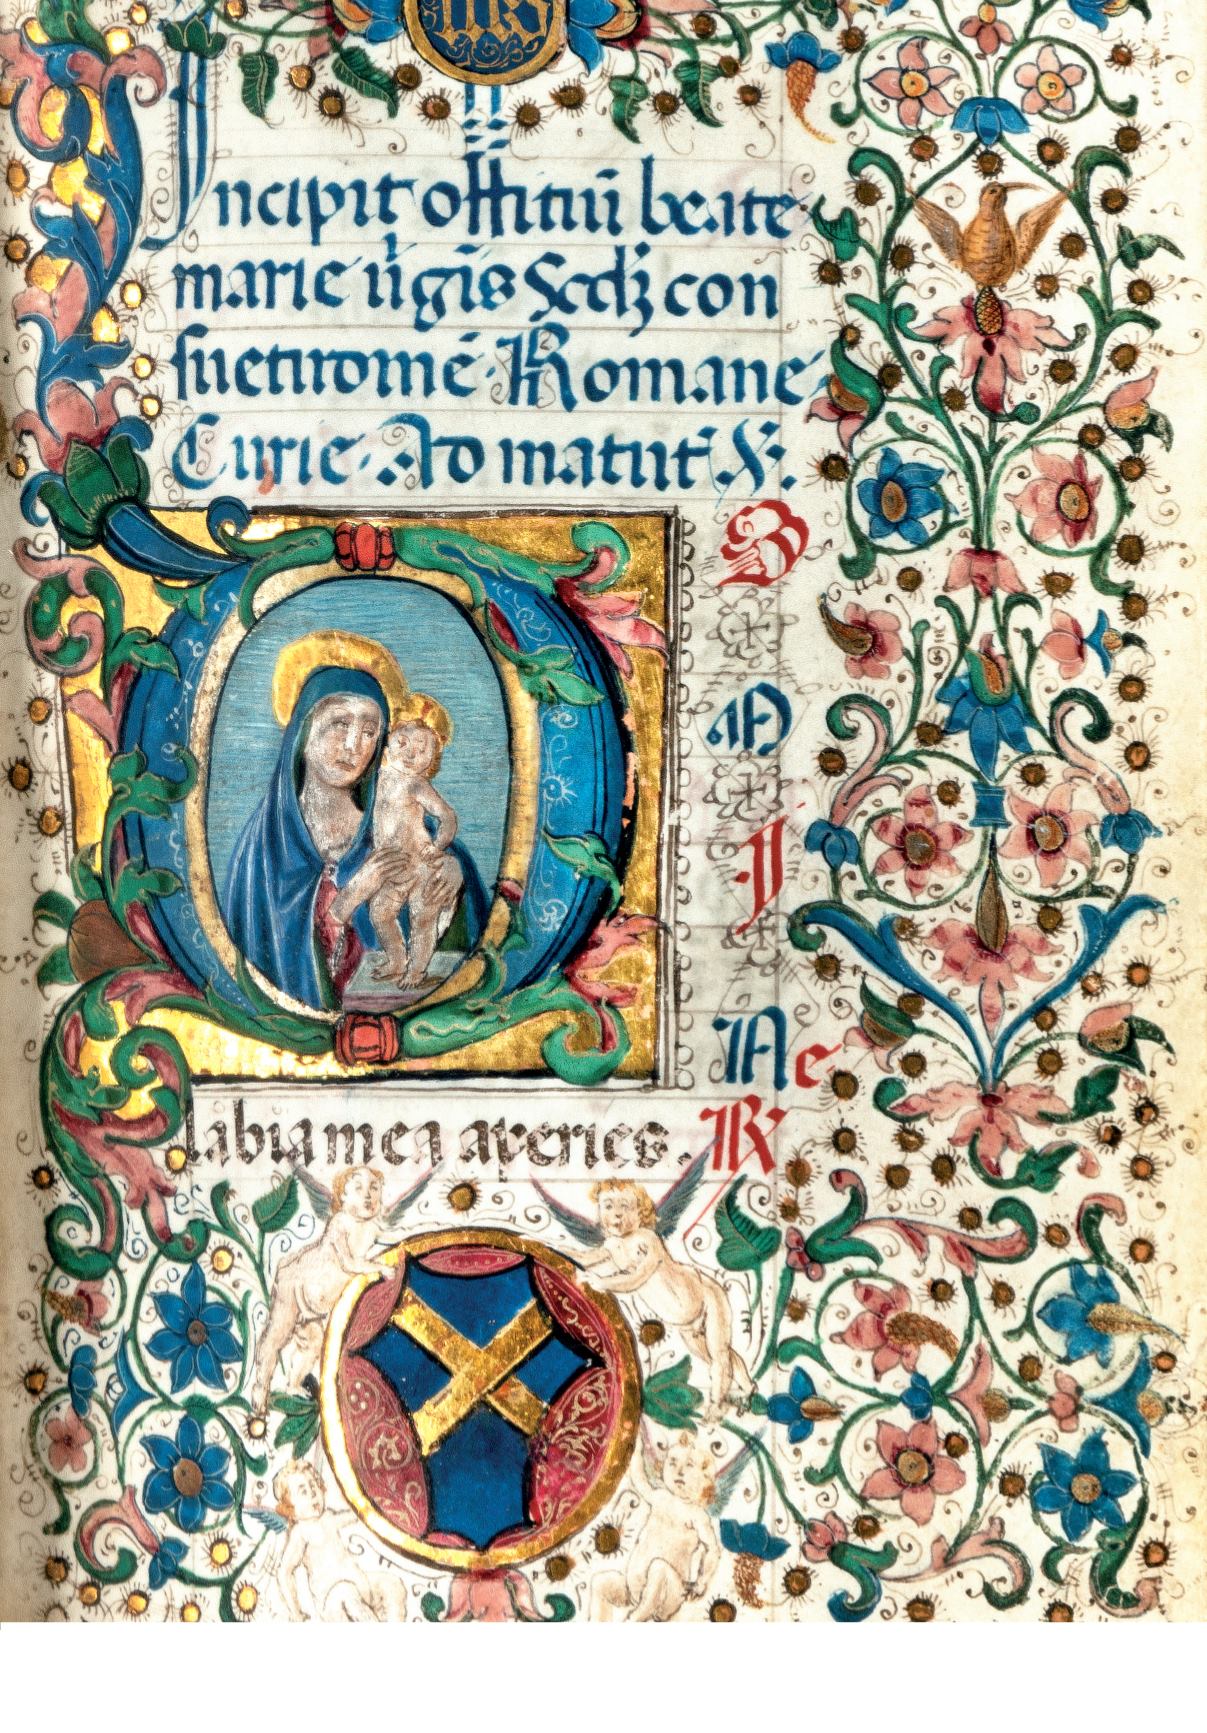 yhs
Incipit offitiū beate
marie ũgīs Scdʒ con
suetudinē Romane
Curie. Ad matut̄. V.
D
O
M
I
N
e
labia mea aperies. R